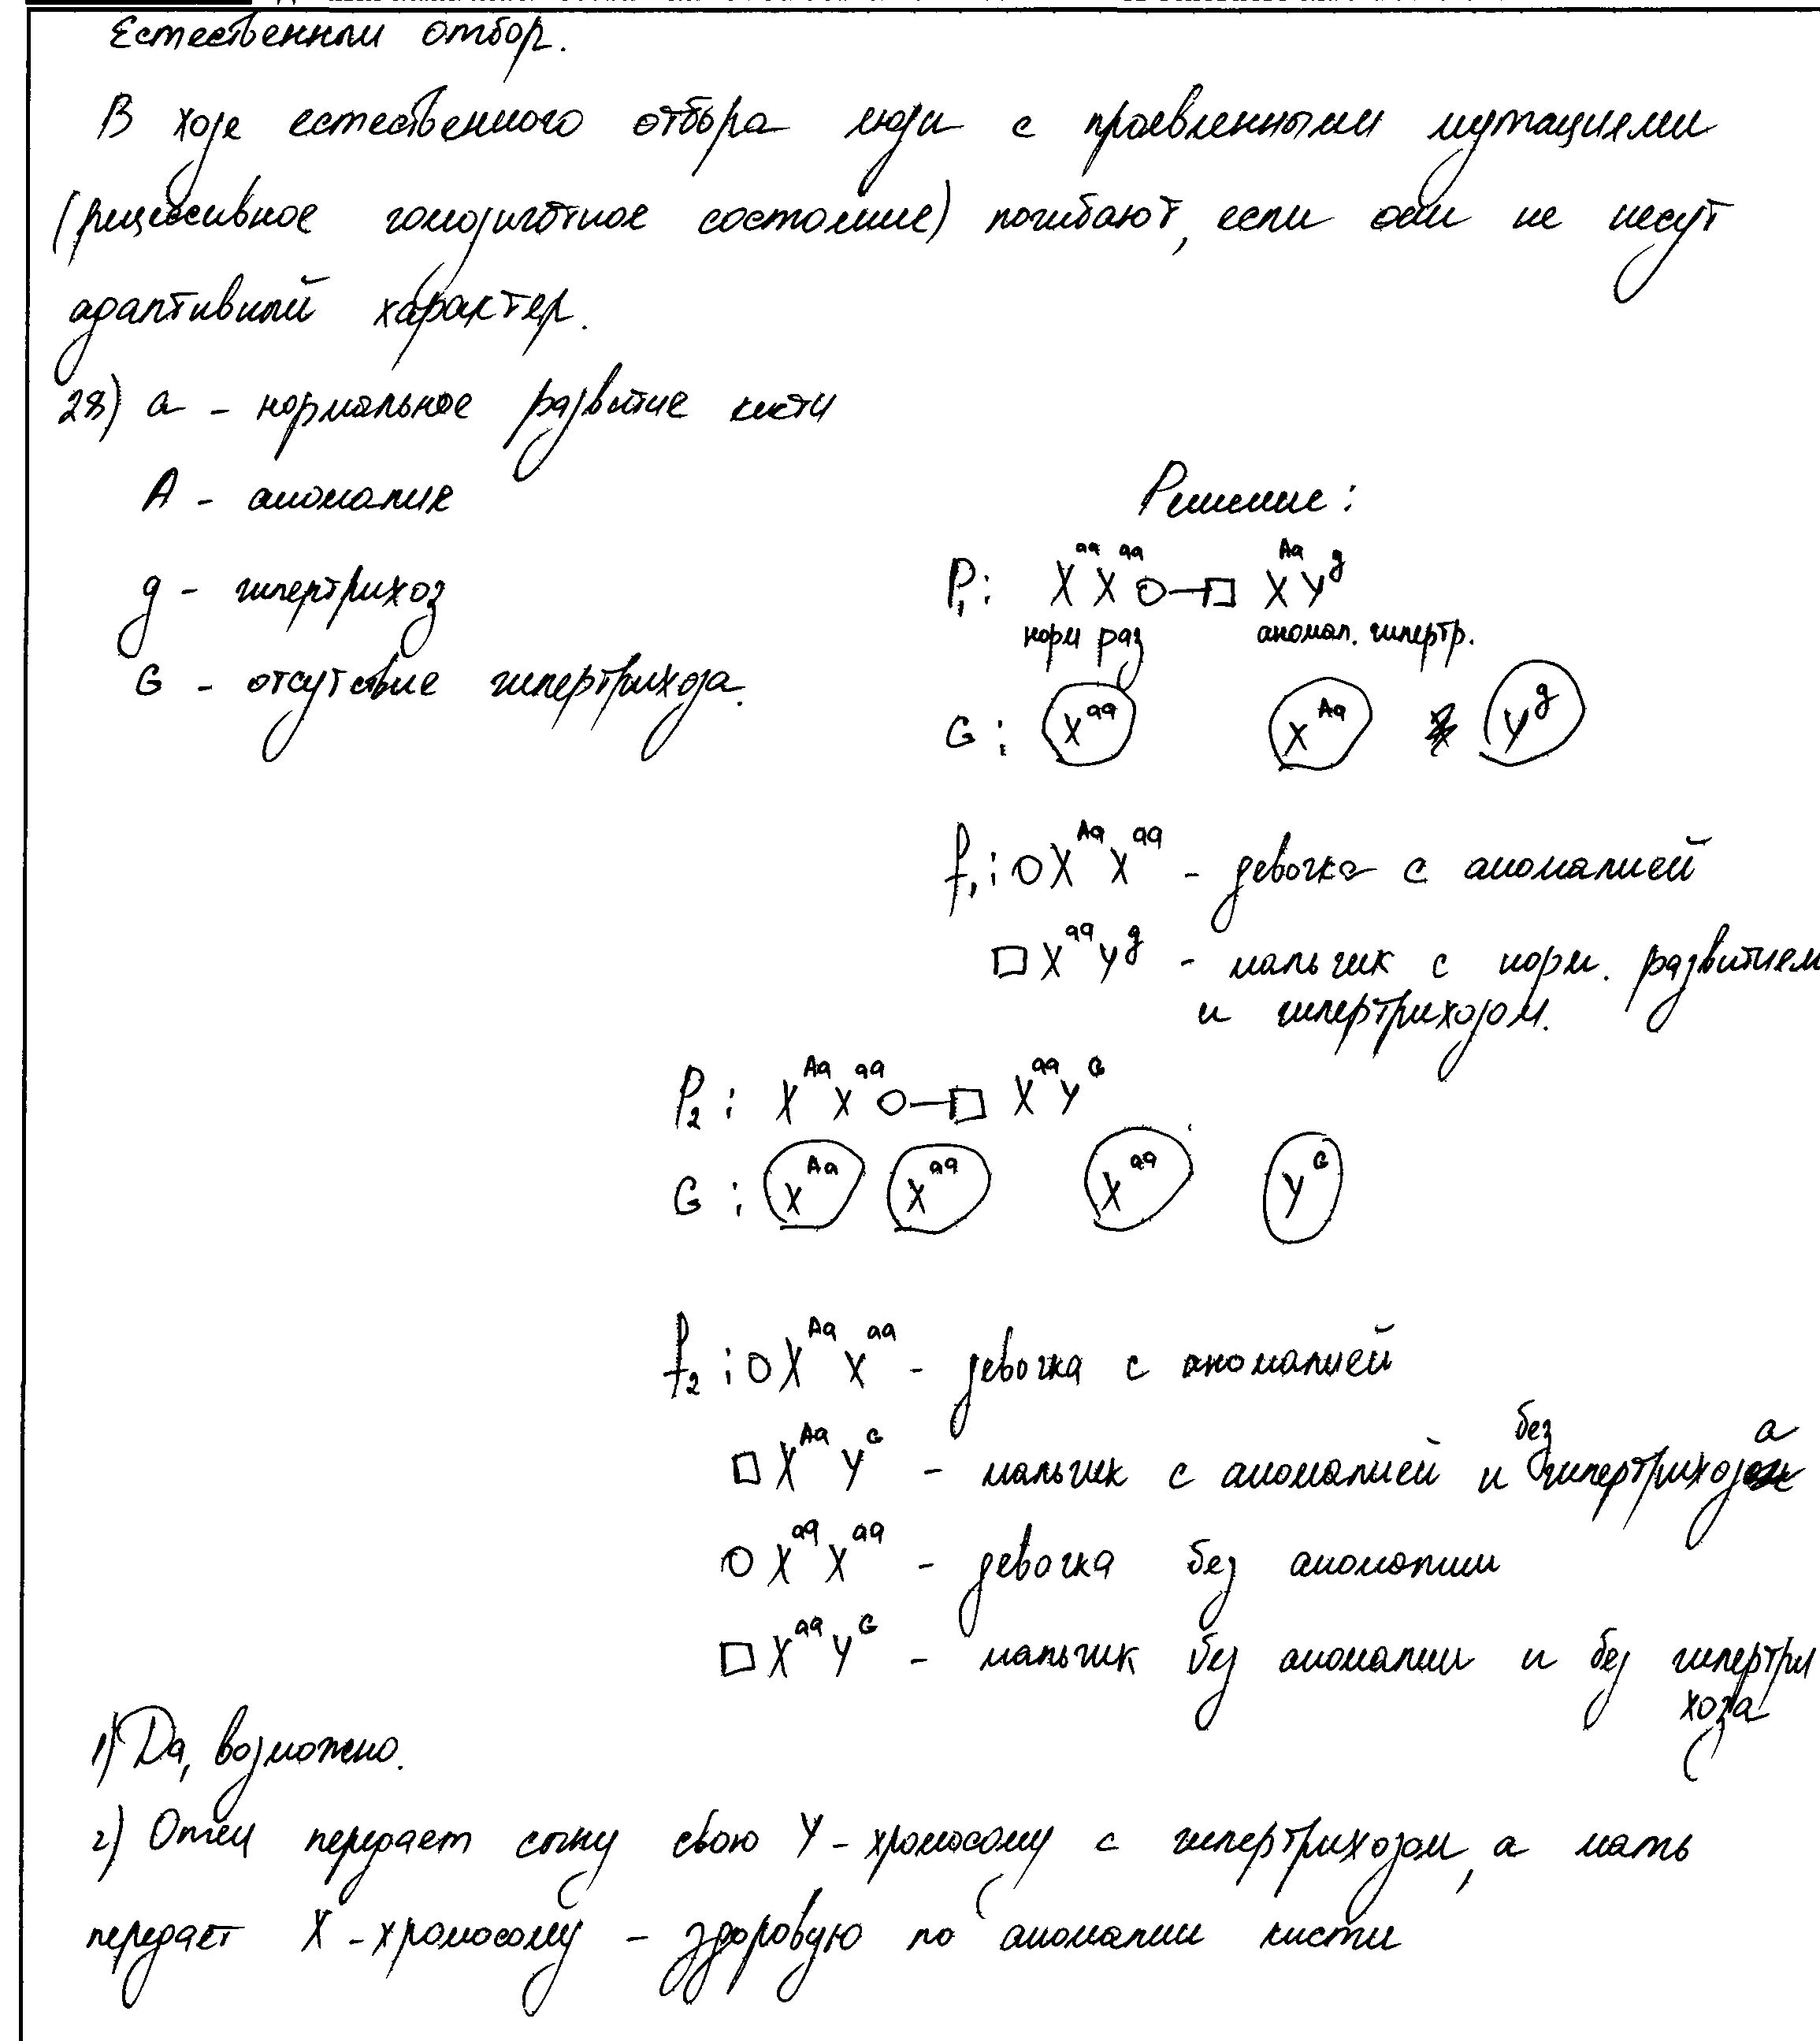 Естественный отбор.
В ходе естественного отбора люди с проявленными мутациями
(рицессивное гомозиготное состояние) погибают, если они не несут
адаптивный характер.
28) а - нормальное развитие кисти
А - аномалия
g - гипертрихоз
G - отсутствие гипертрихоза.
Решение:
P₁: X^aa X^aa ○—□ X^Aa Y^g
норм раз аномал. гипертр.
G: X^aa X^Aa Y^g
f₁: ○ X^Aa X^aa - девочка с аномалией
□ X^aa Y^g - мальчик с норм. развитием
и гипертрихозом.
P₂: X^Aa X^aa ○—□ X^aa Y^G
G: X^Aa X^aa X^aa Y^G
f₂: ○ X^Aa X^aa - девочка с аномалией
□ X^Aa Y^G - мальчик с аномалией и без гипертрихоза
○ X^aa X^aa - девочка без аномалии
□ X^aa Y^G - мальчик без аномалии и без гипертри
хоза
1) Да, возможно.
2) Отец передает сыну свою Y-хромосому с гипертрихозом, а мать
передает X-хромосому - здоровую по аномалии кисти